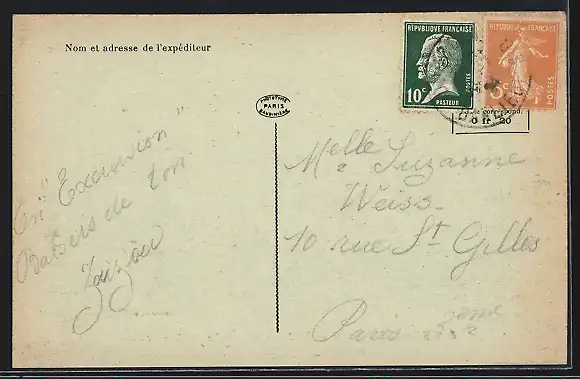 Nom et adresse de l'expéditeur
RÉPUBLIQUE FRANÇAISE
10c
POSTES
PASTEUR
RÉPUBLIQUE FRANÇAISE
5c
POSTES
PHOTOTYPIE
PARIS
BAUDINIÈRE
correspond.
0 fr. 20
En "Excursion"
Baisers de ton
Melle Suzanne
Weiss
10 rue St Gilles
Paris